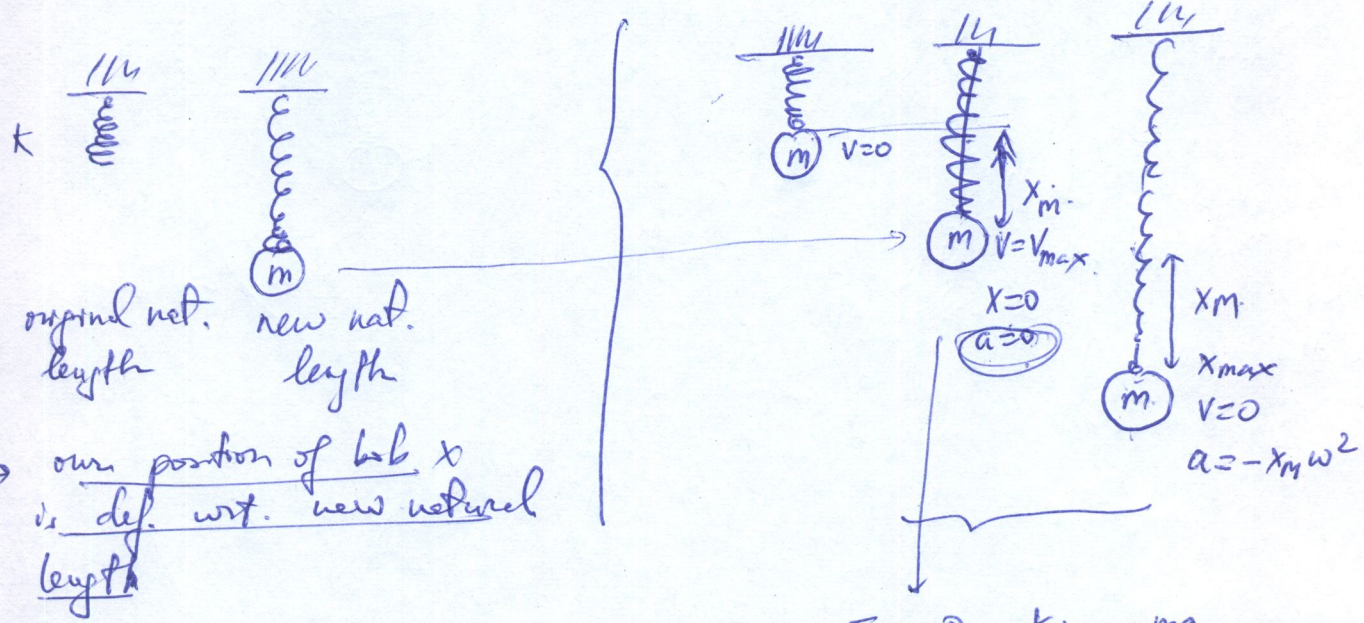 K
m
original nat. length
new nat. length
our position of bob x
is def. wrt. new natural
length
m v=0
m
x_m.
v=v_max.
x=0
a=0
x_M.
m
x_max
v=0
a=-x_M ω²